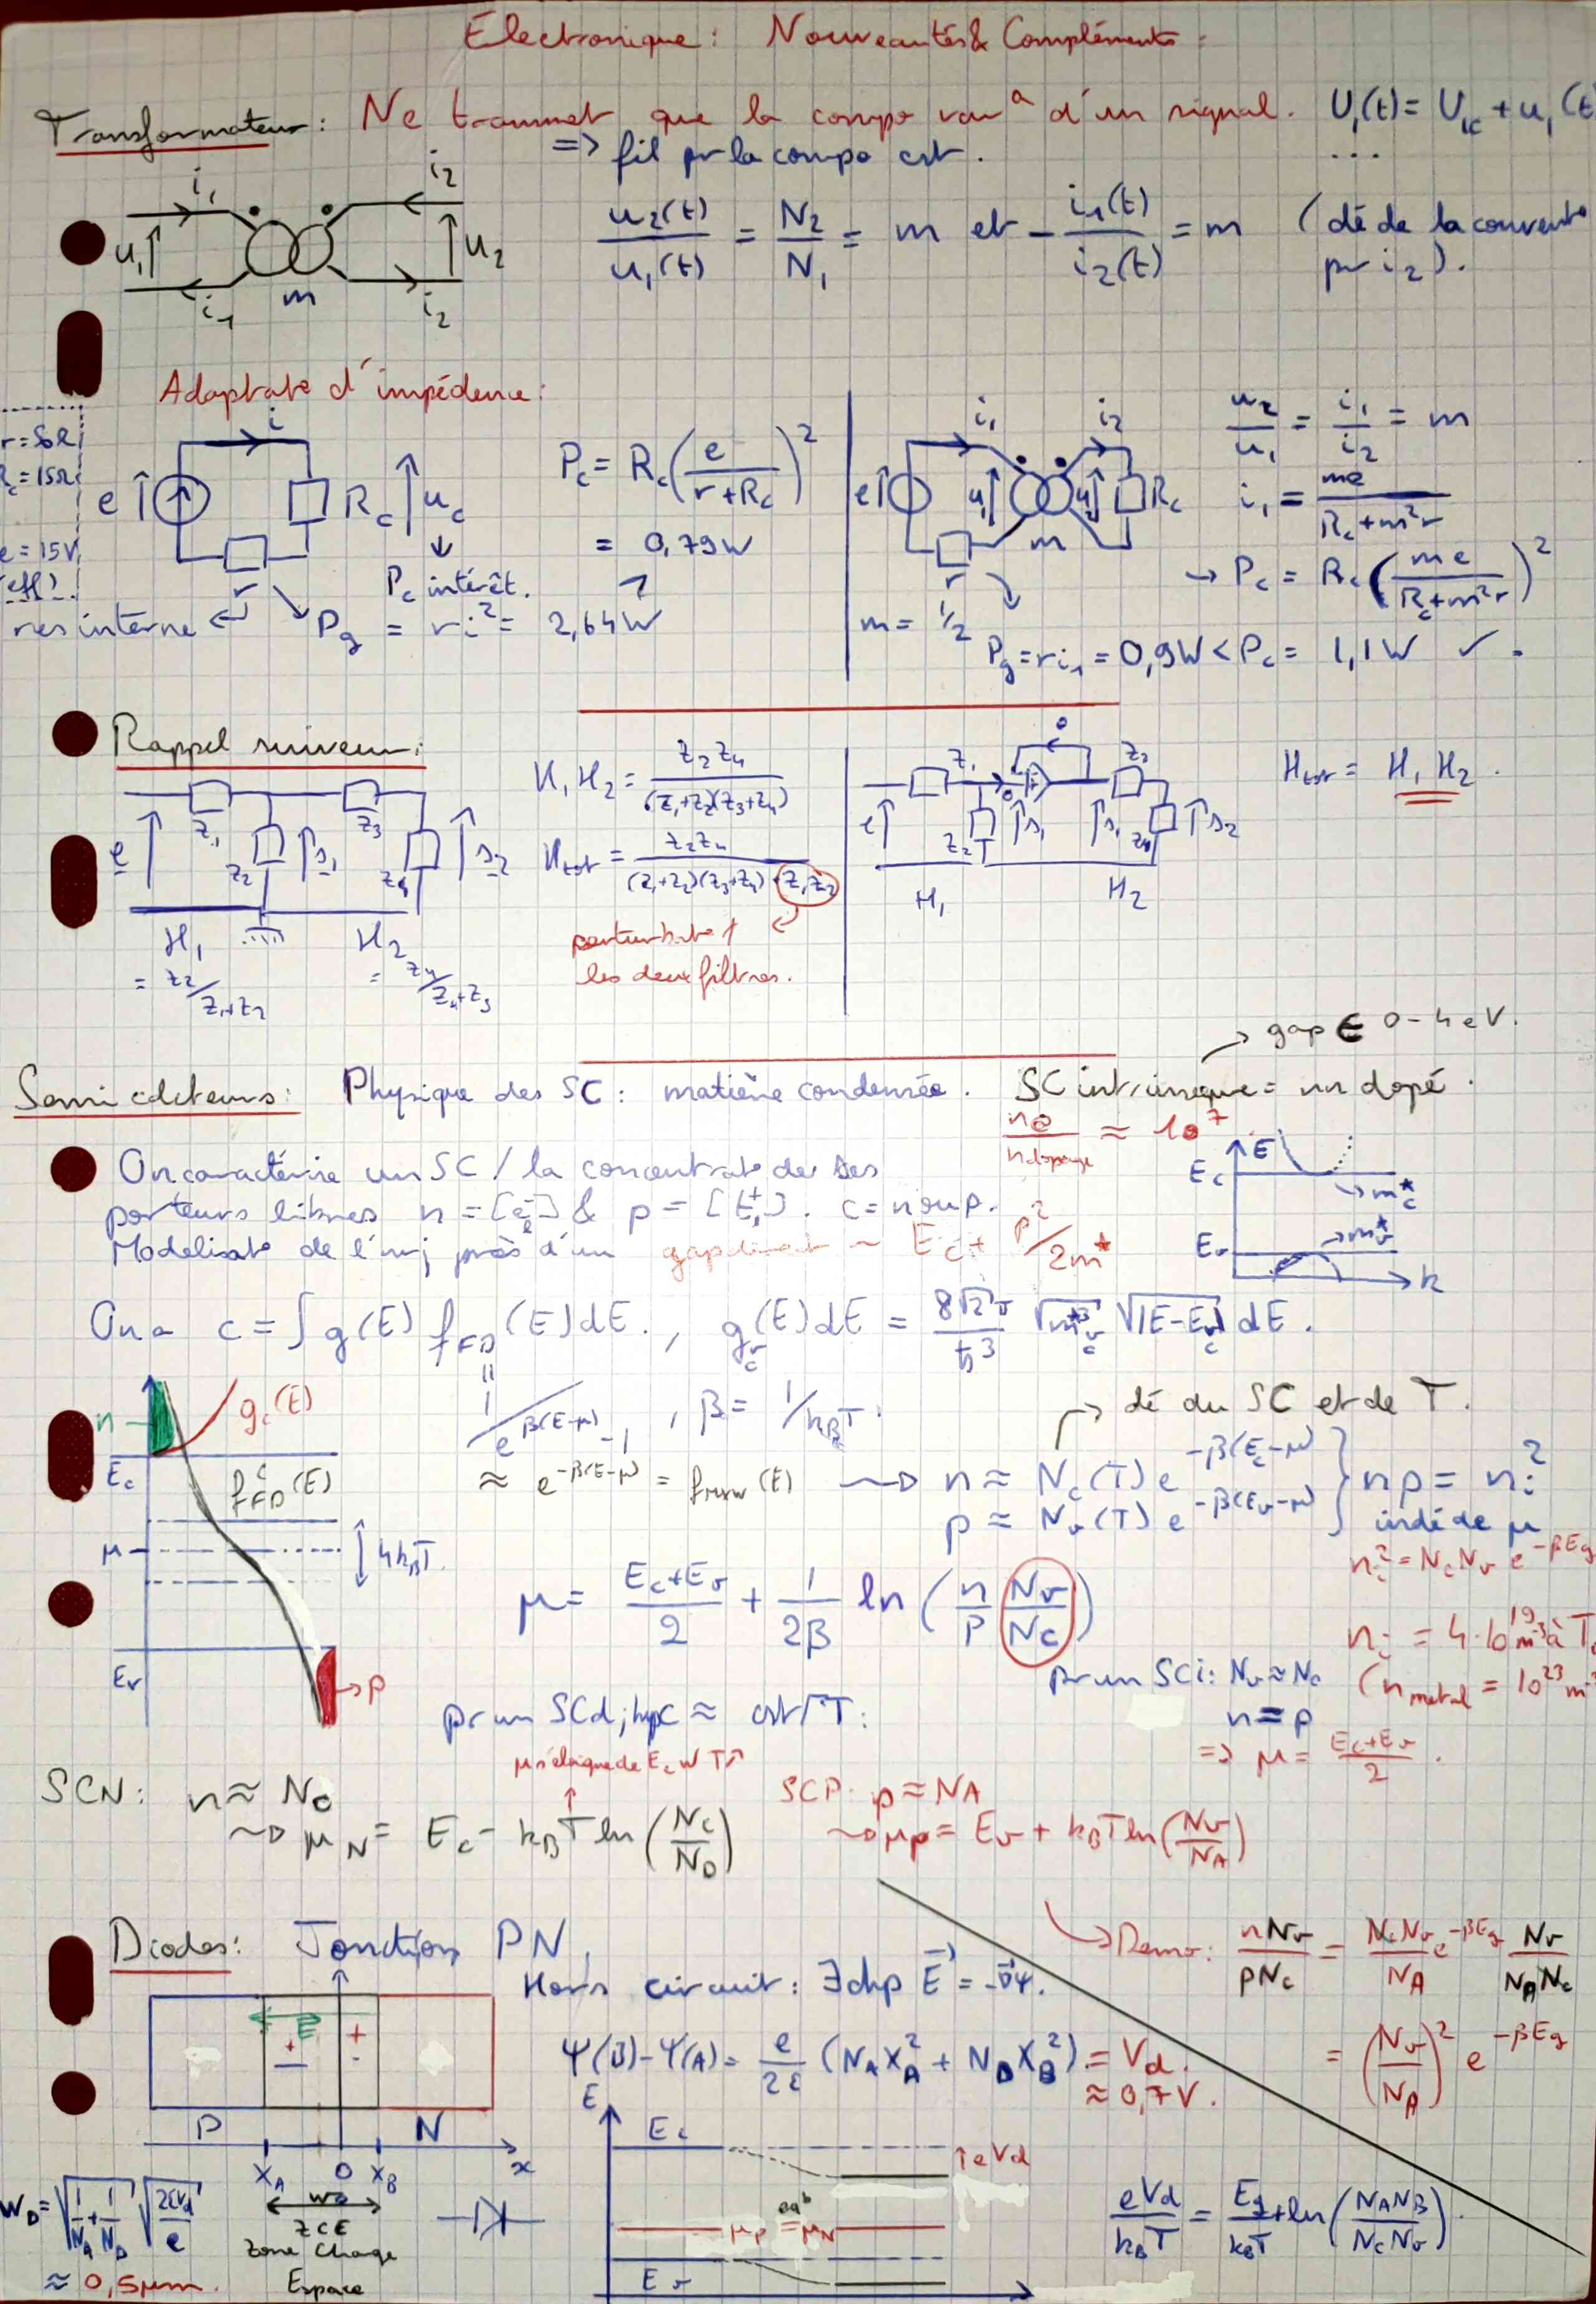 Électronique : Nouveautés & Compléments :
Transformateur : Ne transmet que la compo var^a d'un signal. U₁(t) = U₁c + u₁(t)
=> fil pr la compo cst. ...
i₁ i₂
u₁ u₂
i₁ m i₂
u₂(t)/u₁(t) = N₂/N₁ = m et - i₁(t)/i₂(t) = m (dé de la convent° pr i₂).
Adaptat° d'impédence :
r = 50Ω
Rc = 15Ω
e = 15V
(eff).
i
e Rc uc
r
res interne
Pc = Rc (e/(r+Rc))²
= 0,79W
Pc intérêt.
Pg = ri² = 2,64W
i₁ i₂
e u₁ u Rc
r m
m = 1/2
u₂/u₁ = i₁/i₂ = m
i₁ = me/(Rc+m²r)
→ Pc = Rc (me/(Rc+m²r))²
Pg = ri₁ = 0,9W < Pc = 1,1W ✓.
Rappel suiveur :
e Z₁ Z₂ s₁ Z₃ Z₄ s₂
H₁ = Z₂/Z₁+Z₂
H₂ = Z₄/Z₄+Z₃
H₁H₂ = Z₂Z₄/((Z₁+Z₂)(Z₃+Z₄))
Htot = Z₂Z₄/((Z₁+Z₂)(Z₃+Z₄)+Z₁Z₂)
perturbat° /
les deux filtres.
e Z₁ Z₂ s₁ s₁ Z₃ Z₄ s₂
H₁ H₂
Htot = H₁H₂.
→ gap ∈ 0-4eV.
Semi cdcteurs : Physique des SC : matière condensée. SC intrinsèque = nn dopé.
n@/ndopage ≈ 10⁷
On caractérise un SC / la concentrat° de ses
porteurs libres n = [e⁻] & p = [t⁺]. c = n ou p.
Modélisat° de l'nrj près d'un gap direct ~ Ec + p²/2m*
E
Ec → mc*
Ev → mv*
k
On a c = ∫ g(E) f_FD(E)dE. , g_c^v(E)dE = 8√2π/ħ³ √m*³ √|E-Ev/c| dE.
1/(e^β(E-μ) -1) , β = 1/kBT.
→ dé du SC et de T.
≈ e^-β(E-μ) = fMxw(E) ~> n ≈ Nc(T) e^-β(Ec-μ)
p ≈ Nv(T) e^-β(Ev-μ)
np = ni²
indé de μ
ni² = NcNv e^-βEg
n gc(E)
Ec
f_FD(E)
μ 4kBT.
Ev
→ p
μ = (Ec+Ev)/2 + 1/2β ln(n/p Nv/Nc)
ni = 4.10¹⁹ m⁻³ à T
(nmetal = 10²³ m⁻³
pr un SCi : Nv ≈ Nc
n = p
=> μ = (Ec+Ev)/2.
pr un SCd, hpc ≈ cst/T :
μ s'éloigne de Ec qd T↗
SCN : n ≈ Nc
~> μN = Ec - kBT ln(Nc/ND)
SCP : p ≈ NA
~> μp = Ev + kBT ln(Nv/NA)
→ Demo : nNv/pNc = NcNv e^-βEg/NA Nv/NANc
= (Nv/NA)² e^-βEg
Diodes : Jonction PN.
Hors circuit : ∃ chp E = -∇Ψ.
E
P N
XA 0 XB x
WD
ZCE
Zone Charge
Espace
Ψ(B)-Ψ(A) = e/2ε (NAXA² + NDXB²) = Vd.
≈ 0,7V.
WD = √(1/NA+1/ND) √(2εVd/e)
≈ 0,5μm.
E
Ec
↑eVd
μP = μN
Ev
eVd/kBT = Eg/kBT + ln(NANB/NcNv).